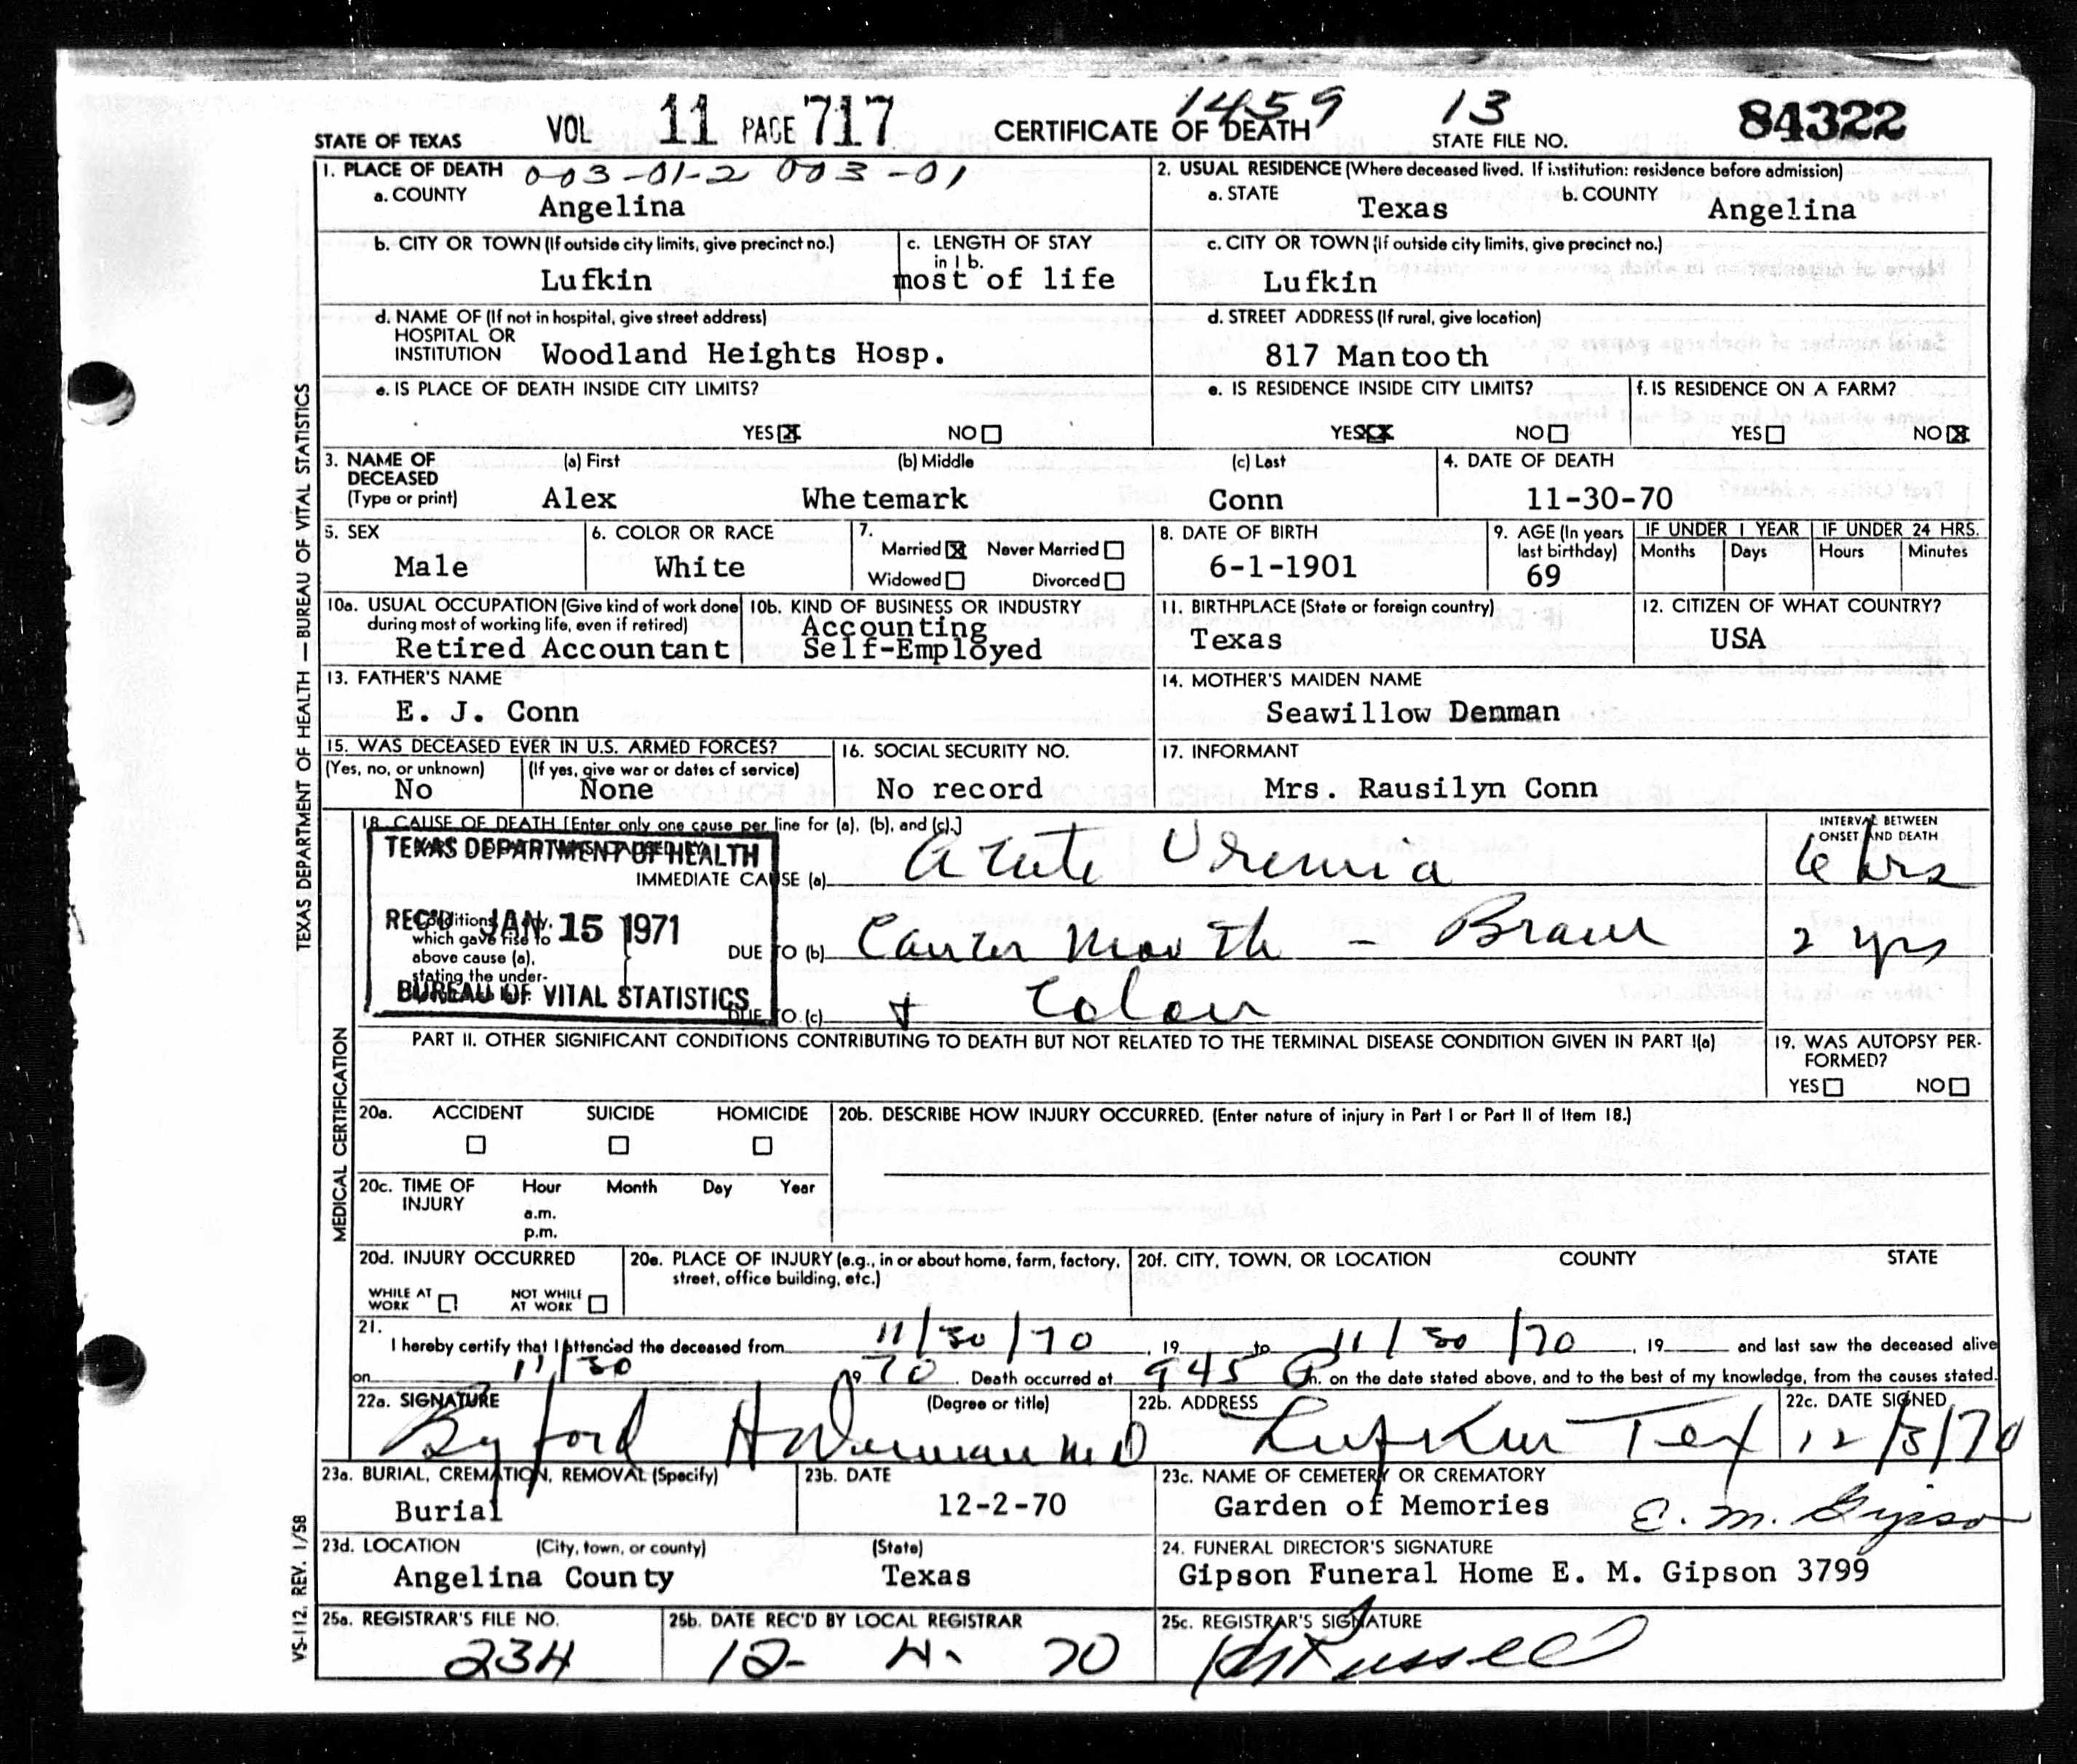 1459 13
STATE OF TEXAS VOL 11 PAGE 717 CERTIFICATE OF DEATH STATE FILE NO. 84322
TEXAS DEPARTMENT OF HEALTH — BUREAU OF VITAL STATISTICS
1. PLACE OF DEATH 003-01-2 003-01
a. COUNTY Angelina
2. USUAL RESIDENCE (Where deceased lived. If institution: residence before admission)
a. STATE Texas b. COUNTY Angelina
b. CITY OR TOWN (If outside city limits, give precinct no.)
Lufkin
c. LENGTH OF STAY
in 1 b.
most of life
c. CITY OR TOWN (If outside city limits, give precinct no.)
Lufkin
d. NAME OF (If not in hospital, give street address)
HOSPITAL OR
INSTITUTION Woodland Heights Hosp.
d. STREET ADDRESS (If rural, give location)
817 Mantooth
e. IS PLACE OF DEATH INSIDE CITY LIMITS?
YES X NO
e. IS RESIDENCE INSIDE CITY LIMITS?
YES XX NO
f. IS RESIDENCE ON A FARM?
YES NO X
3. NAME OF
DECEASED
(Type or print)
(a) First (b) Middle (c) Last
Alex Whetemark Conn
4. DATE OF DEATH
11-30-70
5. SEX
Male
6. COLOR OR RACE
White
7.
Married X Never Married
Widowed Divorced
8. DATE OF BIRTH
6-1-1901
9. AGE (In years
last birthday)
69
IF UNDER 1 YEAR IF UNDER 24 HRS.
Months Days Hours Minutes
10a. USUAL OCCUPATION (Give kind of work done
during most of working life, even if retired)
Retired Accountant
10b. KIND OF BUSINESS OR INDUSTRY
Accounting
Self-Employed
11. BIRTHPLACE (State or foreign country)
Texas
12. CITIZEN OF WHAT COUNTRY?
USA
13. FATHER'S NAME
E. J. Conn
14. MOTHER'S MAIDEN NAME
Seawillow Denman
15. WAS DECEASED EVER IN U.S. ARMED FORCES?
(Yes, no, or unknown) (If yes, give war or dates of service)
No None
16. SOCIAL SECURITY NO.
No record
17. INFORMANT
Mrs. Rausilyn Conn
MEDICAL CERTIFICATION
18. CAUSE OF DEATH [Enter only one cause per line for (a), (b), and (c).]
INTERVAL BETWEEN
ONSET AND DEATH
TEXAS DEPARTMENT OF HEALTH
REC'D JAN 15 1971
BUREAU OF VITAL STATISTICS
IMMEDIATE CAUSE (a) Acute Uremia 6 hrs
Conditions, if any,
which gave rise to
above cause (a),
stating the under-
DUE TO (b) Cancer Mouth - Brain 2 yrs
DUE TO (c) + Colon
PART II. OTHER SIGNIFICANT CONDITIONS CONTRIBUTING TO DEATH BUT NOT RELATED TO THE TERMINAL DISEASE CONDITION GIVEN IN PART I(a)
19. WAS AUTOPSY PER-
FORMED?
YES NO
20a. ACCIDENT SUICIDE HOMICIDE
20b. DESCRIBE HOW INJURY OCCURRED. (Enter nature of injury in Part I or Part II of Item 18.)
20c. TIME OF
INJURY
Hour Month Day Year
a.m.
p.m.
20d. INJURY OCCURRED
WHILE AT
WORK
NOT WHILE
AT WORK
20e. PLACE OF INJURY (e.g., in or about home, farm, factory,
street, office building, etc.)
20f. CITY, TOWN, OR LOCATION COUNTY STATE
21.
I hereby certify that I attended the deceased from 11/30/70, 19 to 11/30/70, 19 and last saw the deceased alive
on 11/30 1970. Death occurred at 945 P m. on the date stated above, and to the best of my knowledge, from the causes stated.
22a. SIGNATURE (Degree or title)
Byford H Denman MD
22b. ADDRESS
Lufkin Tex
22c. DATE SIGNED
12/3/70
23a. BURIAL, CREMATION, REMOVAL (Specify)
Burial
23b. DATE
12-2-70
23c. NAME OF CEMETERY OR CREMATORY
Garden of Memories
E. M. Gipson
23d. LOCATION (City, town, or county) (State)
Angelina County Texas
24. FUNERAL DIRECTOR'S SIGNATURE
Gipson Funeral Home E. M. Gipson 3799
25a. REGISTRAR'S FILE NO.
234
25b. DATE REC'D BY LOCAL REGISTRAR
12- 4- 70
25c. REGISTRAR'S SIGNATURE
Russell
VS-112, REV. 1/58